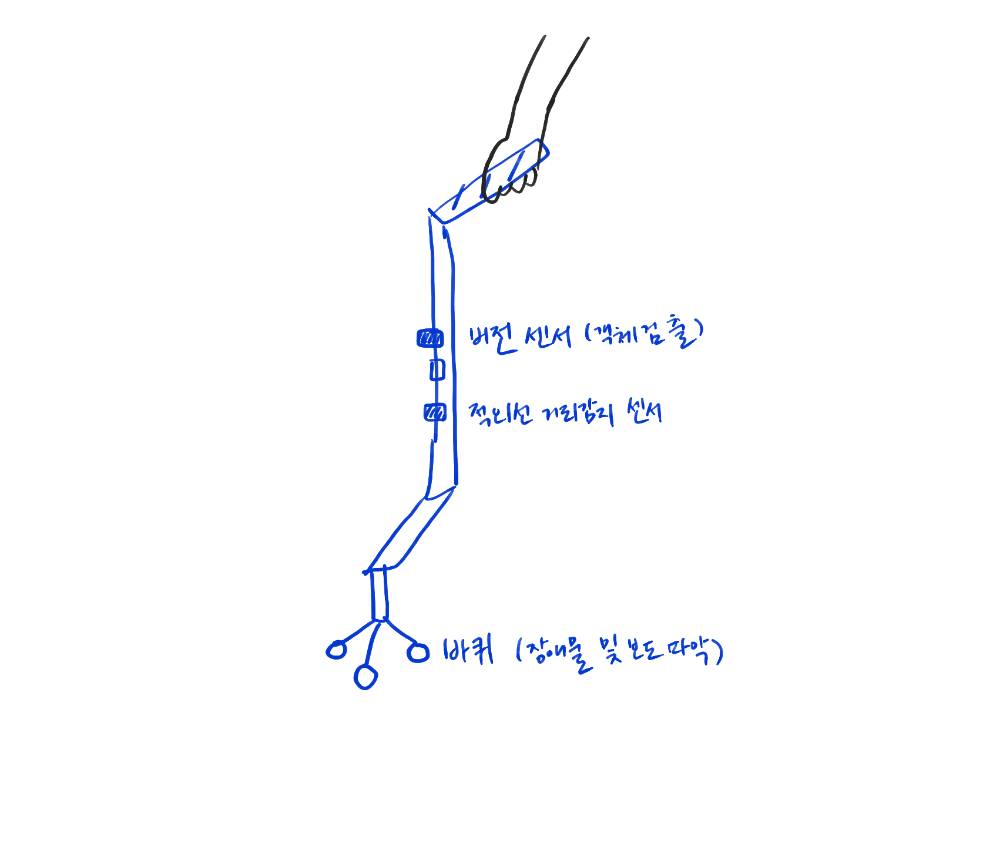 버전 센서 (객체검출)
적외선 거리감지 센서
바퀴 (장애물 및 보도 파악)